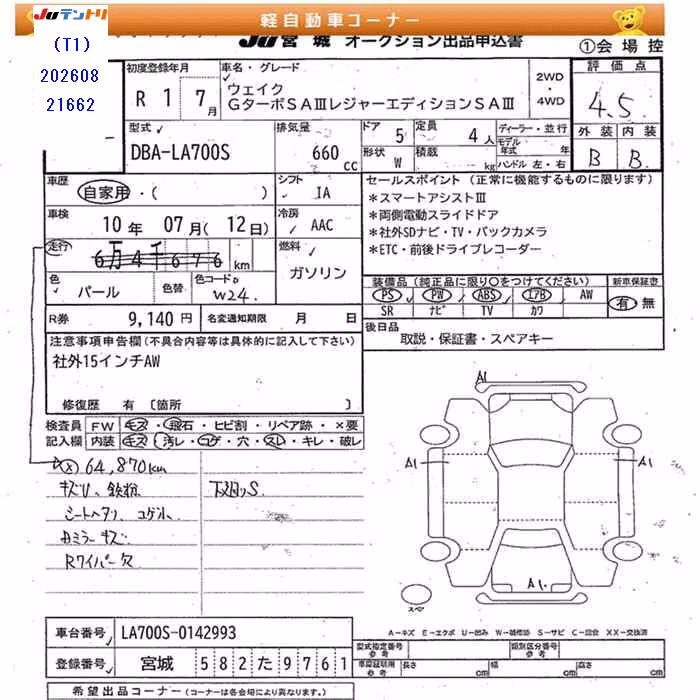 Juテントリ
軽自動車コーナー
(T1)
202608
21662
Ju宮城 オークション出品申込書
①会場控
初度登録年月
R 1 7月
車名・グレード
ウェイク
GターボSAⅢレジャーエディションSAⅢ
2WD
・
4WD
評価点
4.5
外装 内装
B B
型式
DBA-LA700S
排気量
660 cc
ドア 5
形状 W
定員 4人
積載 kg
ディーラー・並行
モデル年式 年
ハンドル 左・右
車歴
自家用・( )
シフト
IA
車検
10年 07月(12日)
冷房
AAC
走行
6万4千676 km
燃料
ガソリン
色
パール
色替
色コードNo
W24
R券
9,140円
名変通知期限 月 日
セールスポイント(正常に機能するものに限ります)
*スマートアシストⅢ
*両側電動スライドドア
*社外SDナビ・TV・バックカメラ
*ETC・前後ドライブレコーダー
装備品(純正品に限り〇をつけてください)
PS PW ABS エアB AW
SR ナビ TV カワ
新車保証書
有 無
後日品
取説・保証書・スペアキー
注意事項申告欄(不具合内容等は具体的に記入して下さい)
社外15インチAW
修復歴 有 [箇所 ]
検査員記入欄
FW キズ・飛石・ヒビ割・リペア跡・×要
内装 キズ・汚レ・コゲ・穴・スレ・キレ・破レ
64,870km
キズU、鉄粉
シートヘタリ、コゲ小、
Dミラーキズ
Rワイパー欠
下廻りS
A1
A1
A1
A1
スペア
A-キズ E-エクボ U-凹み W-補修跡 S-サビ C-腐食 XX-交換済
車台番号
LA700S-0142993
登録番号
宮城 582た9761
型式指定番号 参考
類別区分番号 参考
車庫証明用 参考
長さ cm 幅 cm 高さ cm
希望出品コーナー(コーナーは各会場により異なります。)